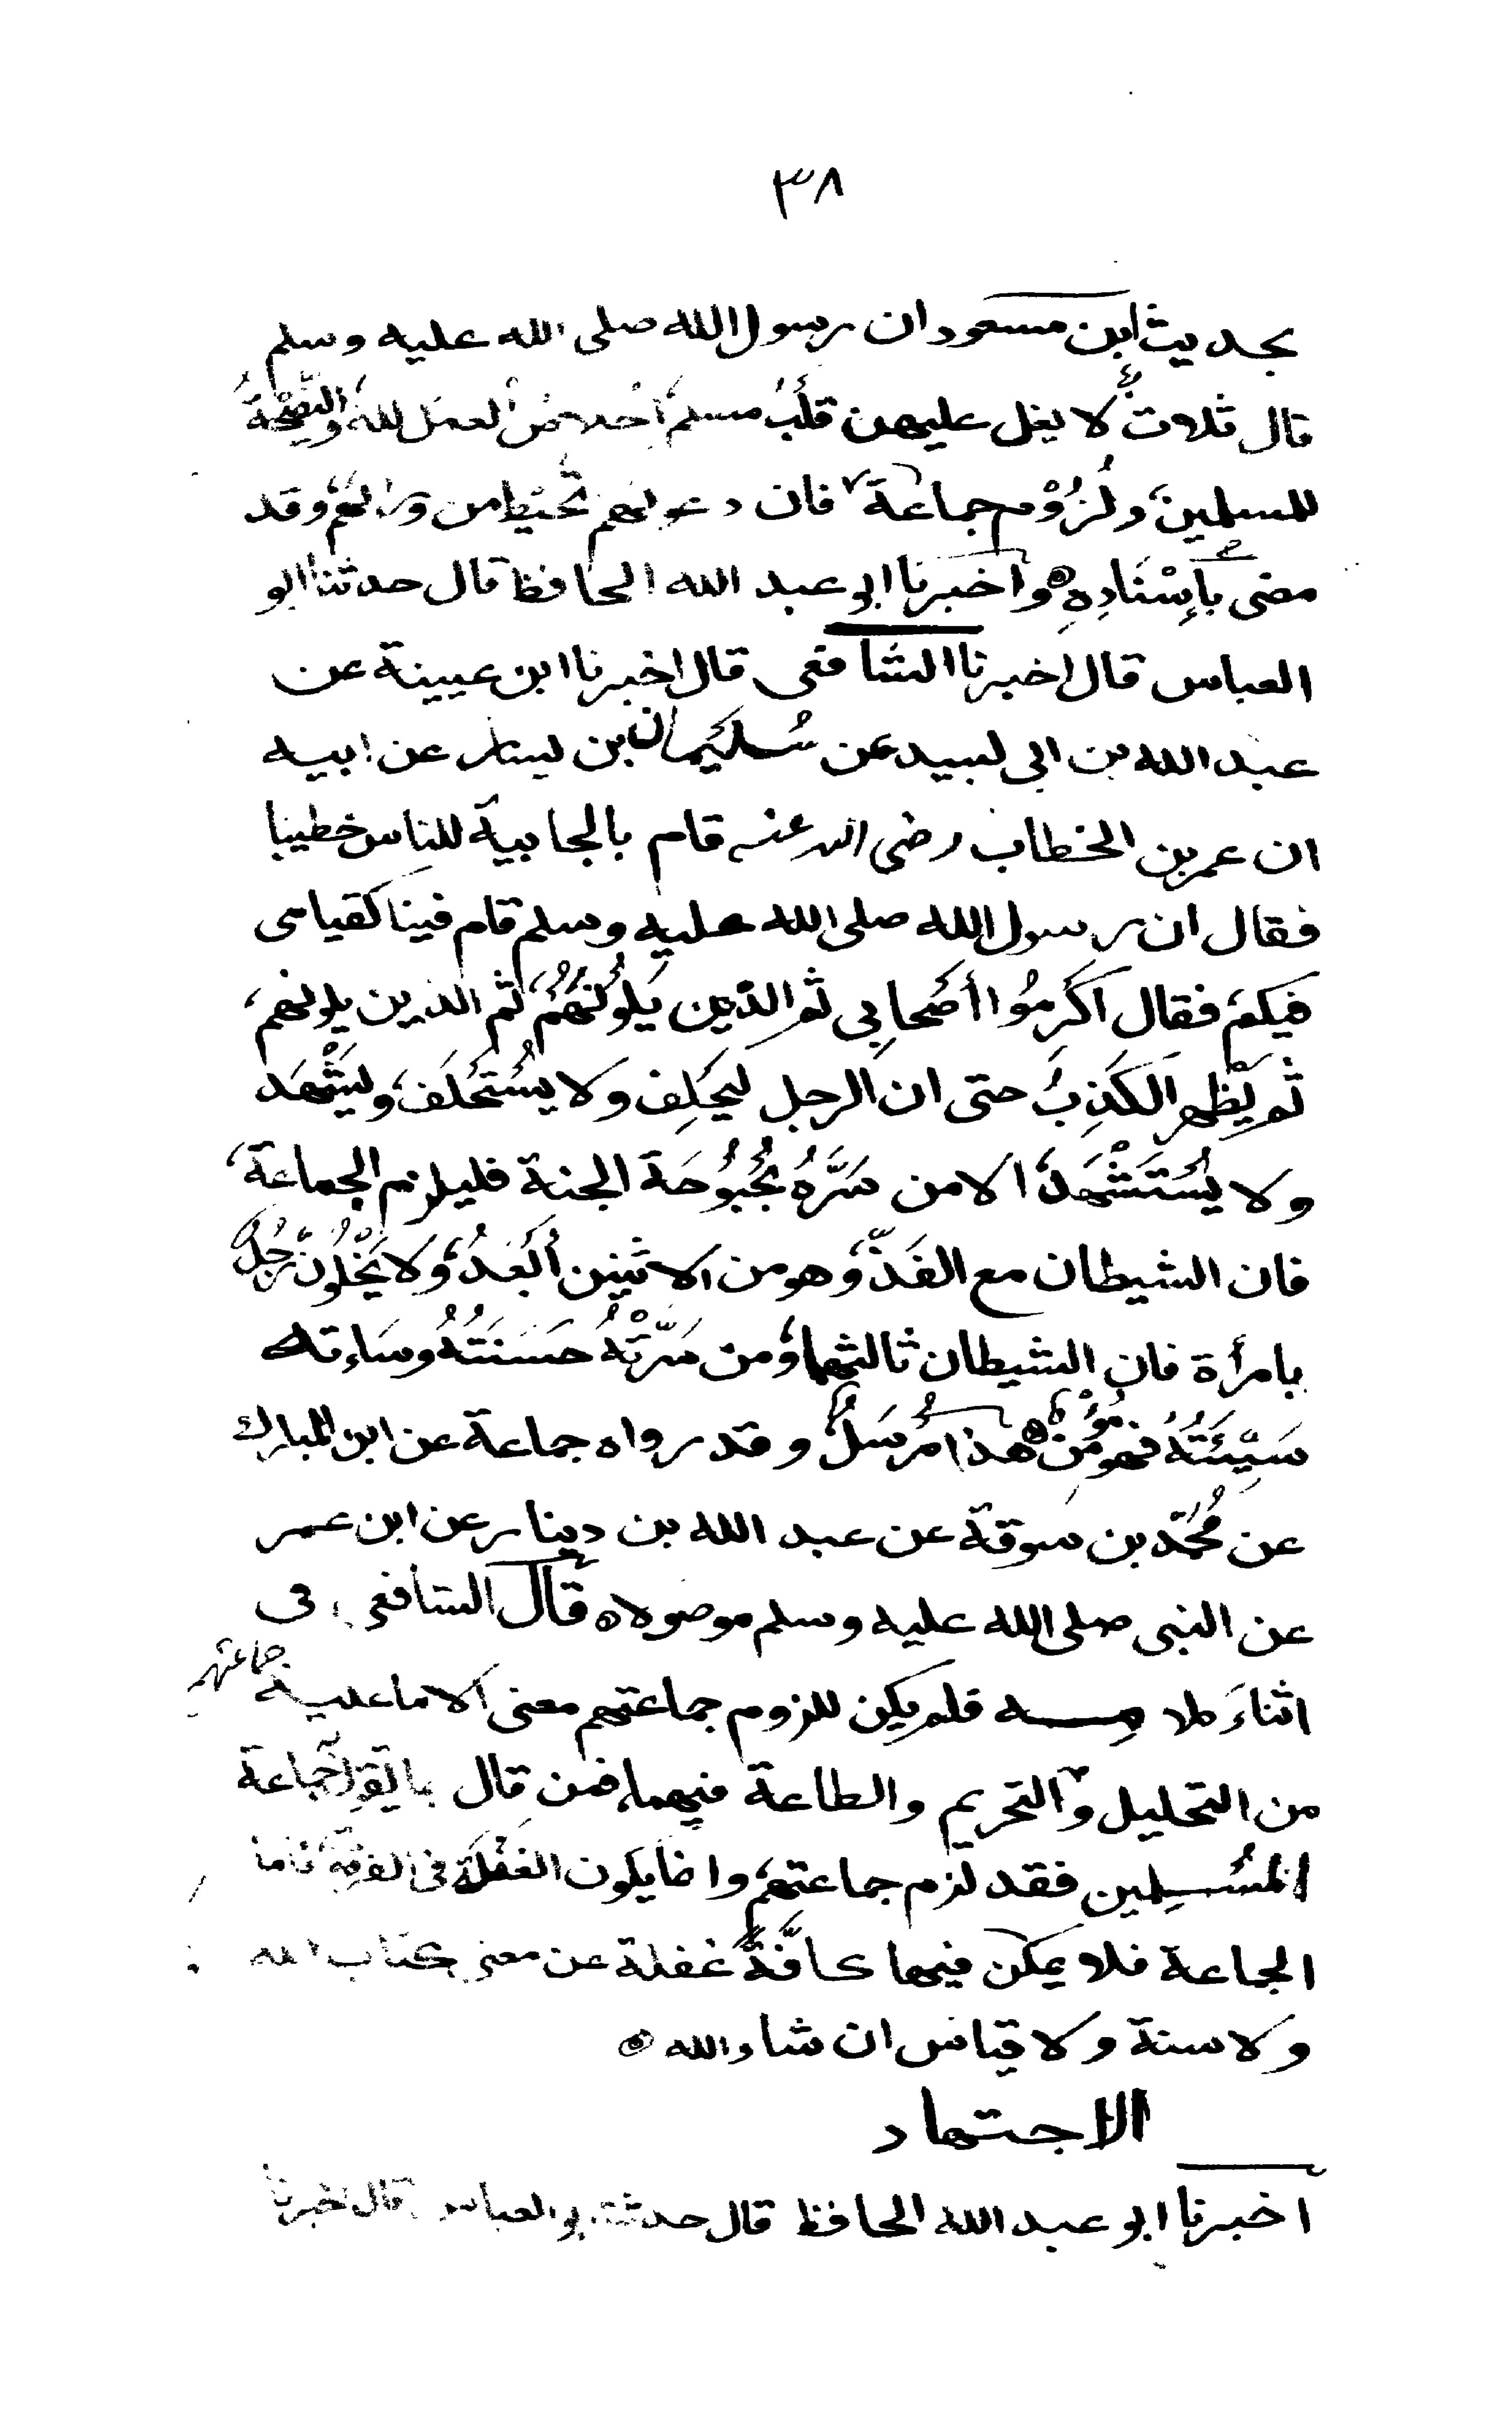 ٣٨
بحديث ابن مسعود ان رسول الله صلى الله عليه وسلم
قال ثلاث لا يغل عليهن قلب مسلم اخلاص العمل لله والنصيحة
للمسلمين ولُزُوْم جماعة فان دعوتهم تحيط من ورائهم وقد
مضى بإسْنَادِهِ واخبرنا ابو عبد الله الحافظ قال حدثنا ابو
العباس قال اخبرنا الشافعى قال اخبرنا ابن عيينة عن
عبد الله بن ابى لبيد عن سُلَيمان بن يسار عن ابيه
ان عمر بن الخطاب رضى الله عنه قام بالجابية للناس خطيبا
فقال ان رسول الله صلى الله عليه وسلم قام فينا كقيامى
فيكم فقال اكرمُوا أصْحابى ثم الذين يَلُوْنَهُمْ ثم الذين يلونهم
ثم يَظْهر الكَذِبُ حتى ان الرجل ليحْلِف ولا يُسْتَحْلَف ويَشْهَد
ولا يُسْتَشْهَد الا من سَرَّهُ بُحْبُوْحَة الجنة فليلزم الجماعة
فان الشيطان مع الفَذّ وهو من الاثنين أبْعَدُ ولا يَخْلُوَنّ رَجُل
بامرأة فان الشيطان ثالثهما ومن سَرّتْهُ حَسَنَتُهُ وسَاءته
سَيِّئَتُهُ فهو مُؤْمن هذا مُرْسَلٌ وقد رواه جماعة عن ابن المبارك
عن مُحمّد بن سوقة عن عبد الله بن دينار عن ابن عمر
عن النبى صلى الله عليه وسلم موصولا قال الشافعى فى
اثناءَ كلامه فلم يكن للزوم جماعتهم معنى الا ما عليه جماعتهم
من التحليل والتحريم والطاعة فيهما فمن قال بما تقول جماعة
المُسْلِمين فقد لزم جماعتهم وانما يكون الغفلة فى الفرقة فاما
الجماعة فلا يمكن فيها كافّةً غفلة عن معنى كتاب الله
ولا سنة ولا قياس ان شاء الله
الاجتهاد
اخبرنا ابو عبد الله الحافظ قال حدثنا ابو العباس قال اخبرنا